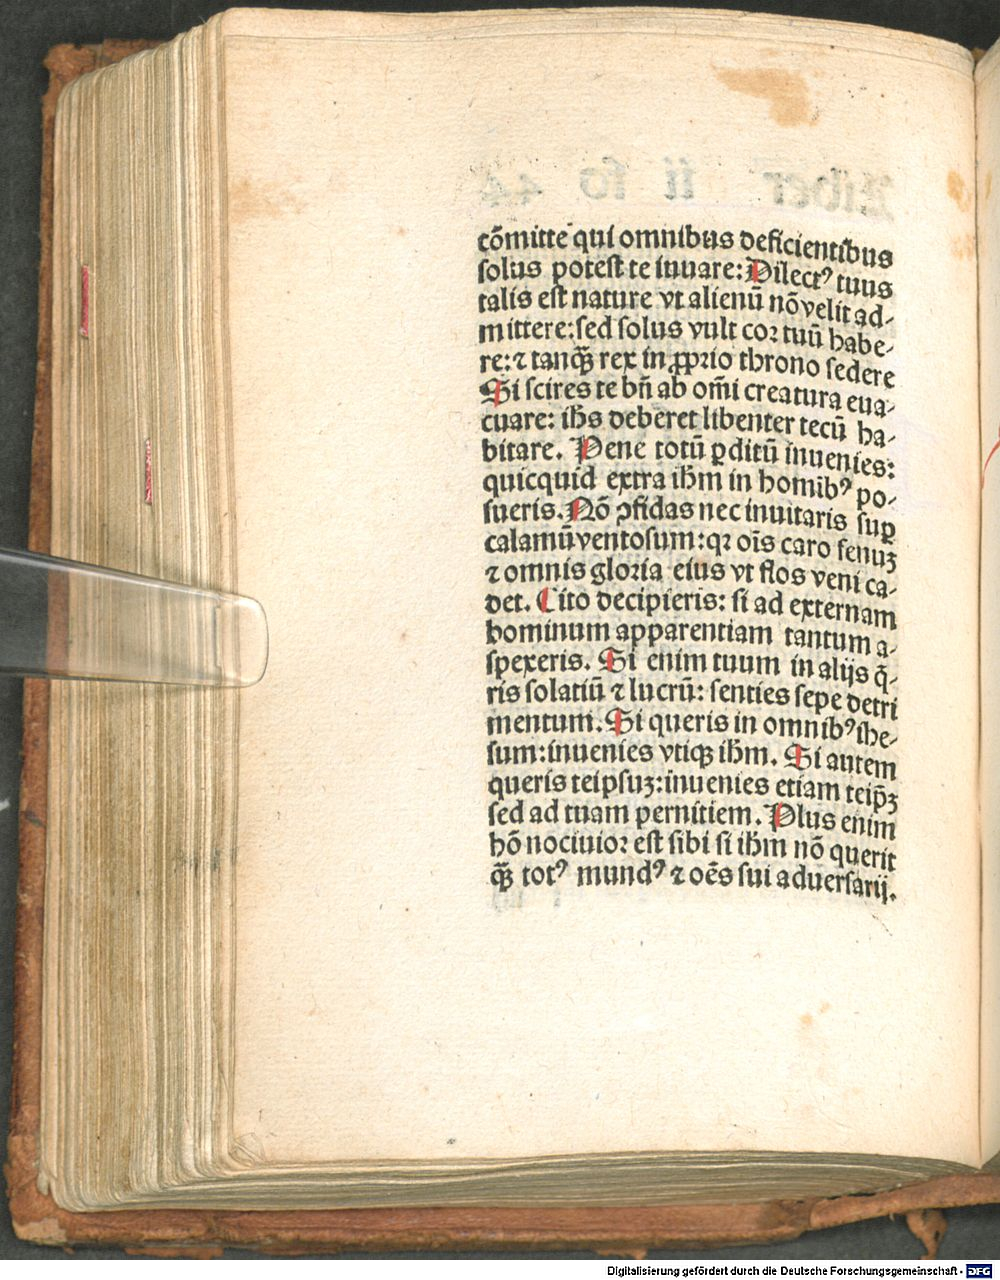 cōmitte qui omnibus deficientibus
solus potest te iuuare: Dilectꝰ tuus
talis est nature vt alienū nō velit ad⸗
mittere: sed solus vult coꝛ tuū habe⸗
re: ⁊ tanq̄ꝫ rex in ꝓprio throno sedere
Si scires te bn̄ ab om̄i creatura eua⸗
cuare: ihs deberet libenter tecū ha⸗
bitare. Pene totū ꝑditū inuenies:
quicquid extra ihm in homibꝰ po⸗
sueris. Nō ꝯfidas nec inuitaris suꝑ
calamū ventosum: qꝛ oīs caro fenuꝫ
⁊ omnis gloꝛia eius vt flos veni ca⸗
det. Cito decipieris: si ad externam
hominum apparentiam tantum a⸗
spexeris. Si enim tuum in alijs q̄⸗
ris solatiū ⁊ lucrū: senties sepe detri
mentum. Si queris in omnibꝰ ihe⸗
sum: inuenies vtiqꝫ ihm. Si autem
queris teipsuꝫ: inuenies etiam teip̄ꝫ
sed ad tuam pernitiem. Plus enim
hō nociuioꝛ est sibi si ihm nō querit
q̄ꝫ totꝰ mundꝰ ⁊ oēs sui aduersarij.
Digitalisierung gefördert durch die Deutsche Forschungsgemeinschaft - DFG